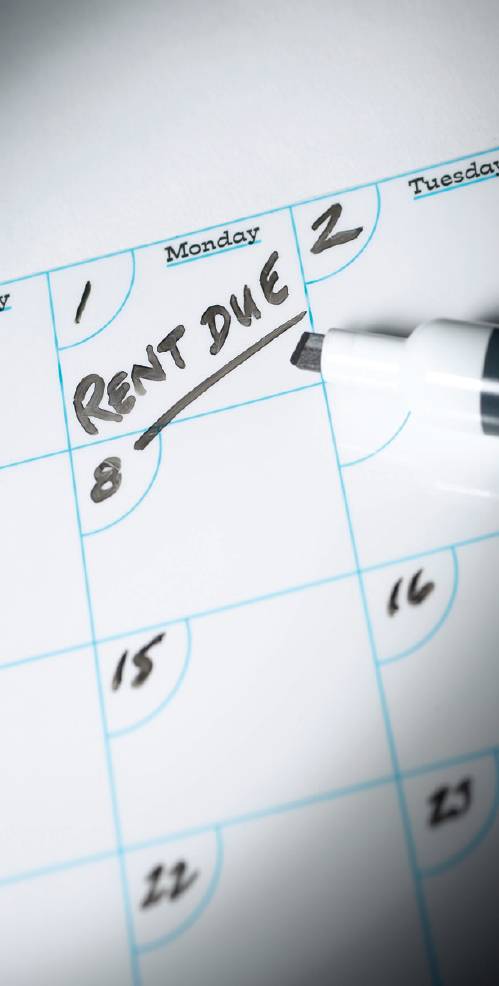 y Monday Tuesday
1 2
RENT DUE
8
15 16
22 23